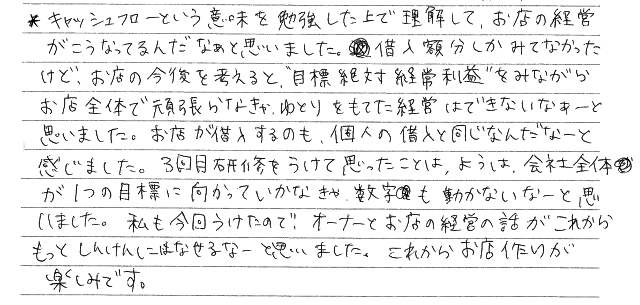 * キャッシュフローという意味を勉強した上で理解して、お店の経営
がこうなってるんだなぁと思いました。借入額分しかみてなかった
けど、お店の今後を考えると、"目標絶対経常利益"をみながら
お店全体で頑張らなきゃ、ゆとりをもてた経営はできないなぁーと
思いました。お店が借入するのも、個人の借入と同じなんだなーと
感じました。3回目研修をうけて思ったことは、ようは、会社全体
が1つの目標に向かっていかなきゃ、数字も動かないなーと思
いました。私も今回うけたので、オーナーとお店の経営の話がこれから
もっとしんけんにはなせるなーと思いました。これからお店作りが
楽しみです。